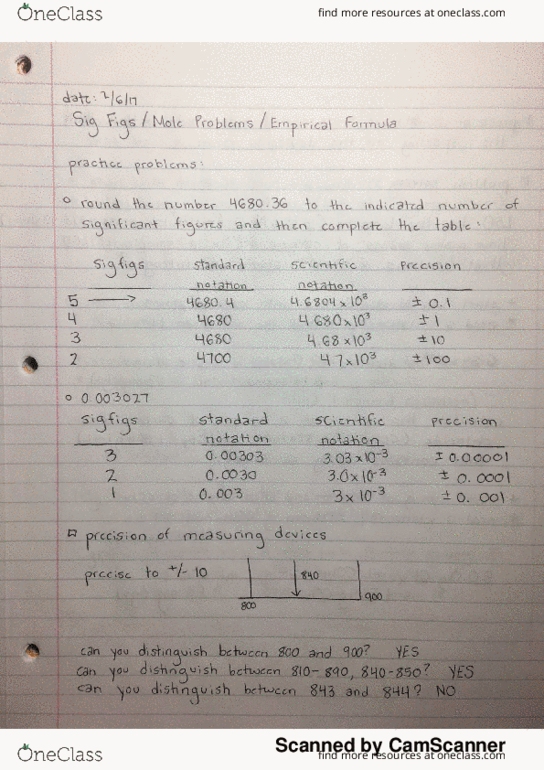 OneClass
find more resources at oneclass.com
date: 2/6/17
Sig Figs / Mole Problems / Empirical Formula
practice problems:
round the number 4680.36 to the indicated number of
significant figures and then complete the table:
sigfigs standard notation scientific notation precision
5 → 4680.4 4.6804 x 10³ ± 0.1
4 4680 4.680x10³ ± 1
3 4680 4.68 x10³ ± 10
2 4700 4.7x10³ ±100
0.003027
sigfigs standard notation scientific notation precision
3 0.00303 3.03 x10⁻³ ± 0.00001
2 0.0030 3.0x10⁻³ ± 0.0001
1 0.003 3x 10⁻³ ± 0.001
precision of measuring devices
precise to +/- 10
840
900
800
can you distinguish between 800 and 900? YES
can you distinguish between 810-890, 840-850? YES
can you distinguish between 843 and 844? NO
Scanned by CamScanner
OneClass
find more resources at oneclass.com